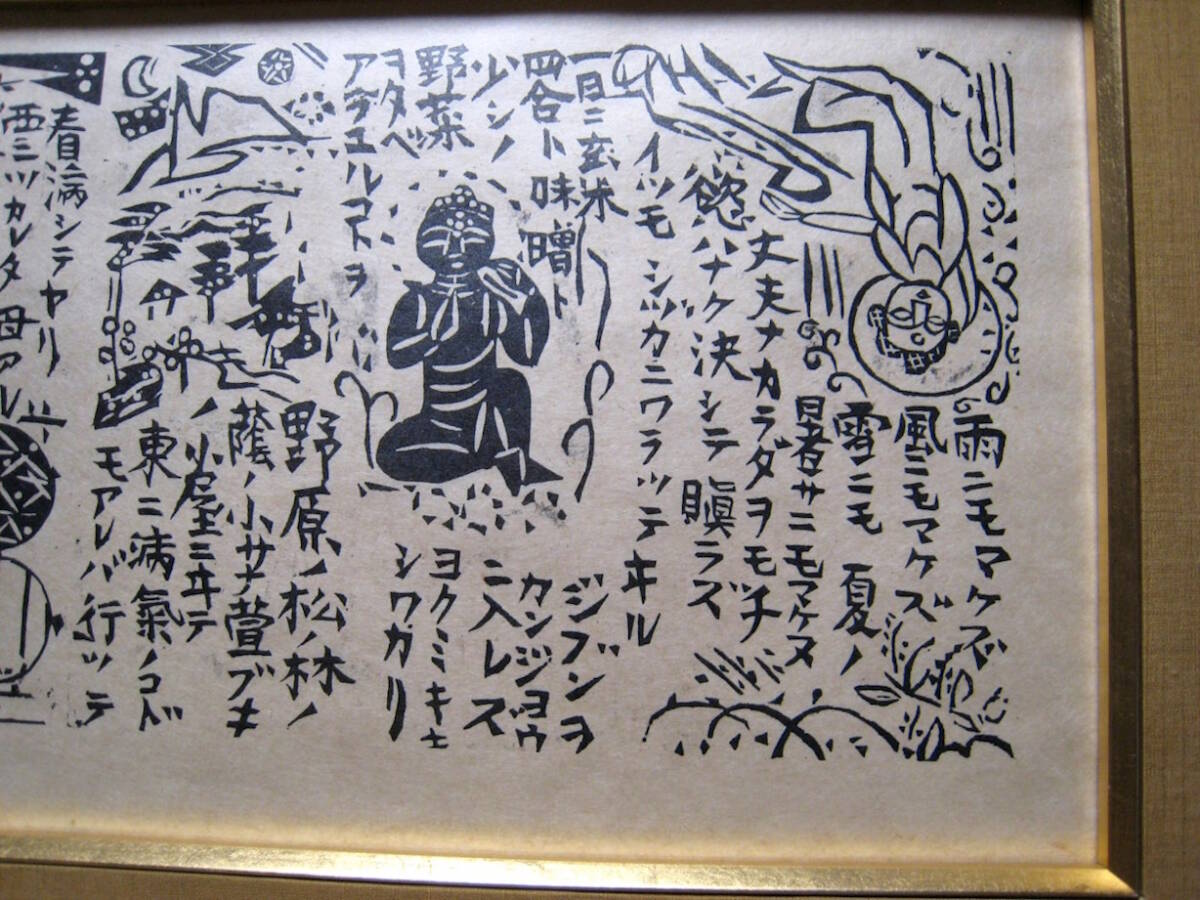 雨ニモマケズ
風ニモマケズ
雪ニモ 夏ノ
暑サニモマケヌ
丈夫ナカラダヲモチ
慾ハナク決シテ瞋ラズ
イツモシツカニワラッテヰル
一日ニ玄米
四合ト味噌ト
少シノ
野菜
ヲタベ
アラユルコトヲ
ジブンヲ
カンジョウ
ニ入レズ
ヨクミキキ
シワカリ
野原ノ松ノ林ノ
蔭ノ小サナ萱ブキ
ノ小屋ニヰテ
東ニ病氣ノコド
モアレバ行ッテ
看病シテヤリ
西ニツカレタ母アレ